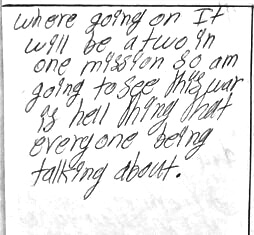 where going on It
will be a two in
one mission so am
going to see this war
is hell thing that
everyone being
talking about.